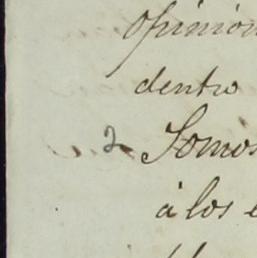 Opinion
dentro
2 Somos
á los